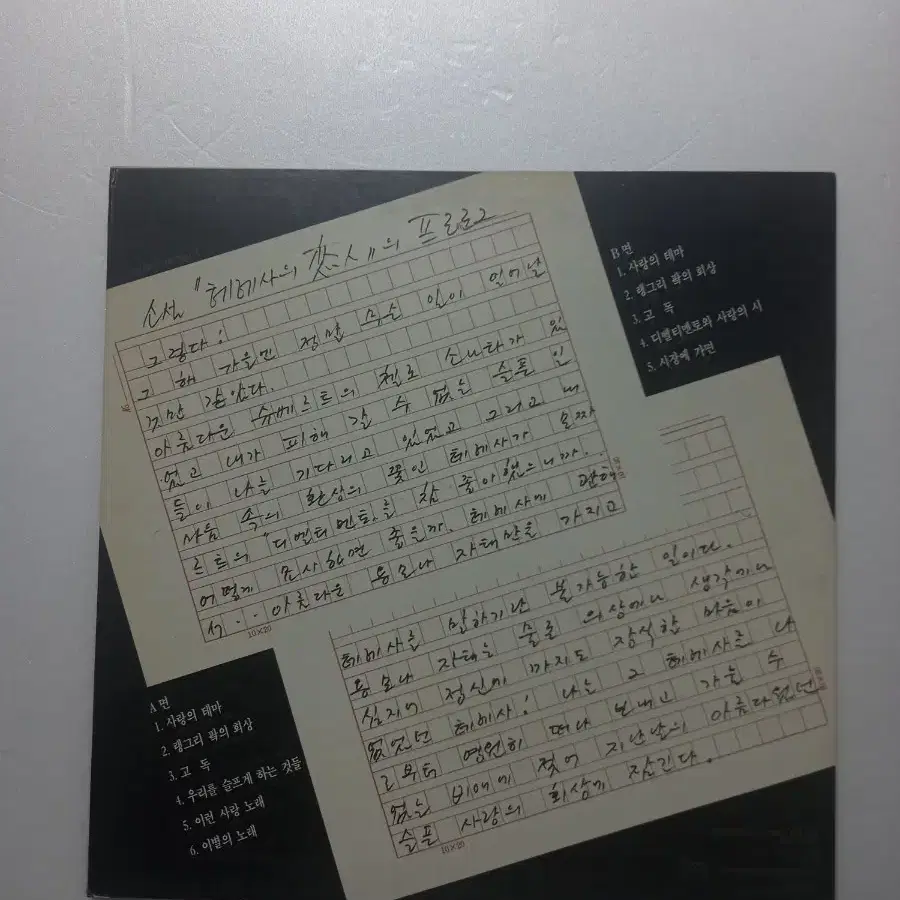 소설 "헤세사의 恋人"의 프로로그
그렇다!
그 해 가을엔 정말 무슨 일이 일어날
것만 같았다.
아름다운 슈베르트의 첼로 소나타가 있
었고 내가 피해 갈 수 없는 슬픈 인
들이 나를 기다리고 있었고 그리고 내
사듬 속의 환상의 꽃인 헤세사가
르트의 "디벨티멘토"를 참 좋아했으니까..
어떻게 존사하면 좋을까. 헤세사에 관해
서.. 아름다운 용모나 자태만을 가지고
10×20
헤세사를 말하기란 불가능한 일이다.
용모나 자태는 물론 의상에나 생각에나
심지어 정신에 까지도 장식한 마음이
없었던 헤세사! 나는 그 헤세사를 나
로부터 영원히 떠나 보내고 가눌 수
없는 비애에 젖어 지난날의 아름다웠던
슬픈 사랑의 회상에 잠긴다.
10×20
B면
1. 사랑의 테마
2. 랭그리 팍의 회상
3. 고 독
4. 디벨티멘토와 사랑의 시
5. 사랑에 가면
A면
1. 사랑의 테마
2. 랭그리 팍의 회상
3. 고 독
4. 우리를 슬프게 하는 것들
5. 이런 사랑 노래
6. 이별의 노래